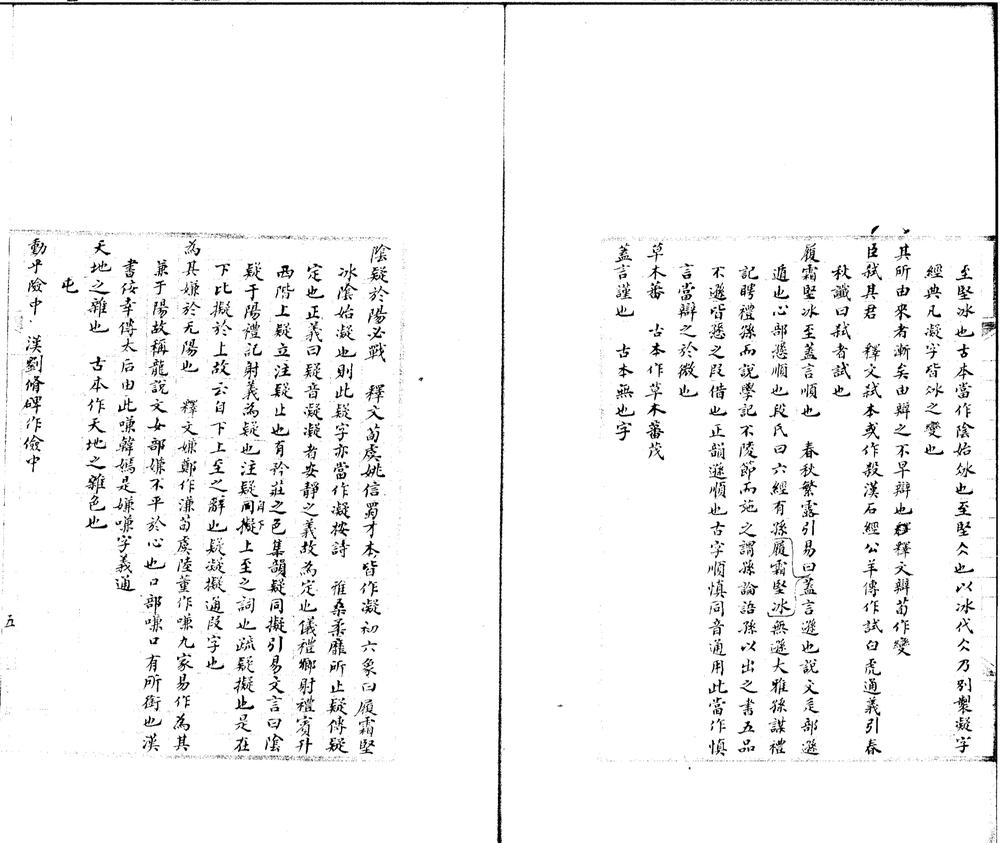 至堅冰也古本當作陰始冰也至堅仌也以冰代仌乃別製凝字
經典凡凝字皆冰之變也
其所由來者漸矣由辯之不早辯也釋文辯荀作變
臣弒其君 釋文弒本或作殺漢石經公羊傳作試白虎通義引春
秋讖曰弒者試也
履霜堅冰至蓋言順也 春秋繁露引易曰履霜堅冰蓋言遜也說文辵部遜
遁也心部愻順也段氏曰六經有孫無遜大雅孫謀禮
記聘禮孫而說學記不陵節而施之謂孫論語孫以出之書五品
不遜皆愻之叚借也正韻遜順也古字順慎同音通用此當作慎
言當辯之於微也
草木蕃 古本作草木蕃茂
蓋言謹也 古本無也字
陰疑於陽必戰 釋文荀虞姚信蜀才本皆作凝初六象曰履霜堅
冰陰始凝也則此疑字亦當作凝桉詩 雅桑柔靡所止疑傳疑
定也正義曰疑音凝凝者安靜之義故為定也儀禮鄉射禮賓升
西階上疑立注疑止也有矜莊之色集韻疑同擬引易文言曰陰
疑于陽禮記射義為疑也注疑同擬自下上至之詞也疏疑擬也是在
下比擬於上故云自下上至之辭也疑凝擬通叚字也
為其嫌於无陽也 釋文嫌鄭作溓荀虞陸董作嗛九家易作為其
兼于陽故稱龍說文女部嫌不平於心也口部嗛口有所銜也漢
書佞幸傳太后由此嗛韓嫣是嫌嗛字義通
天地之雜也 古本作天地之雜色也
屯
動乎險中 漢劉脩碑作儉中
五